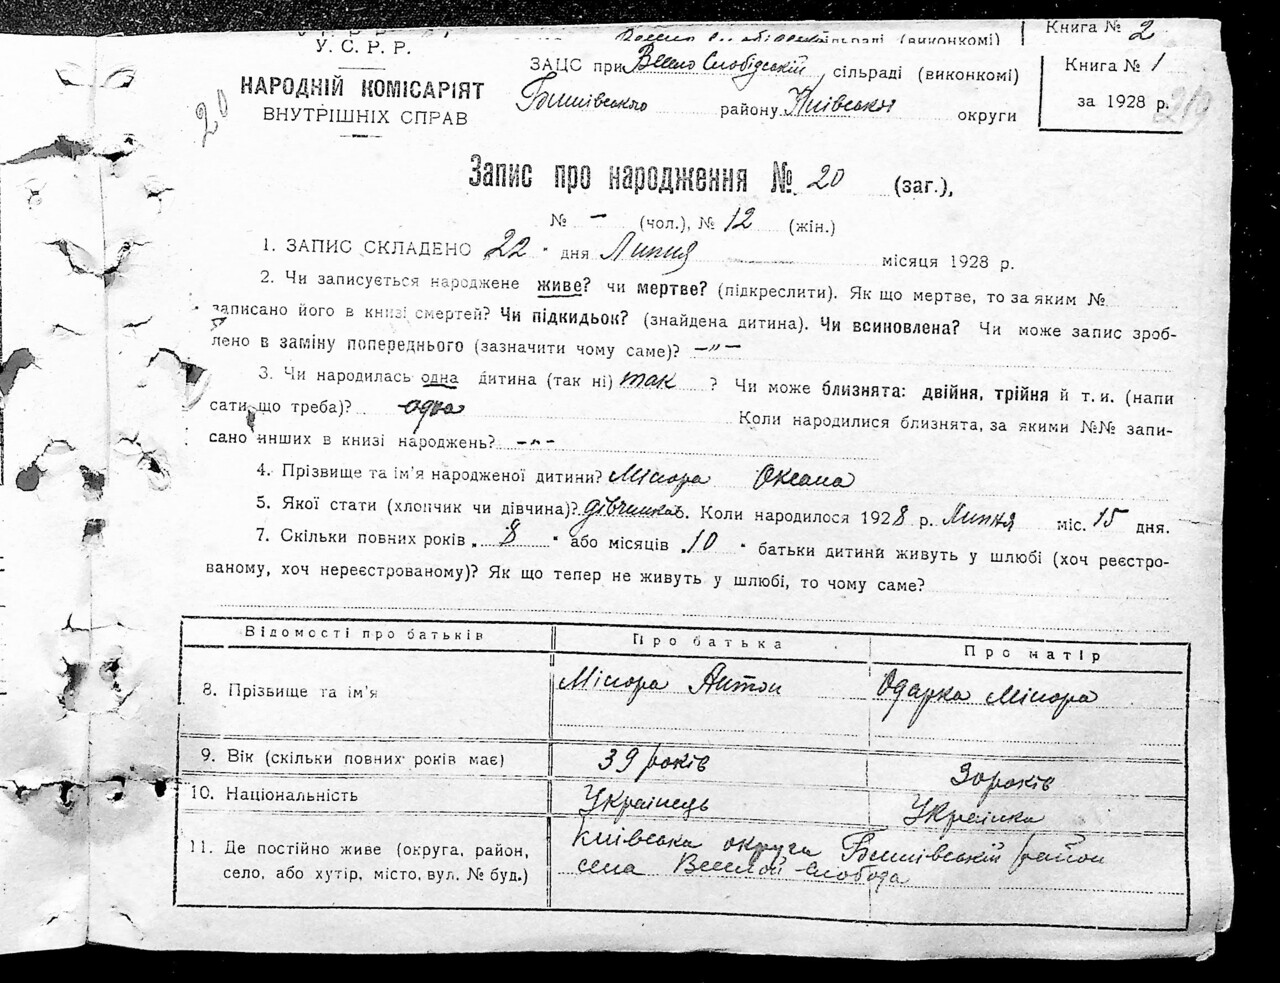 сільраді (виконкомі)
Книга № 2
У. С. Р. Р.
НАРОДНІЙ КОМІСАРІЯТ
ВНУТРІШНІХ СПРАВ
20
ЗАЦС при Весело Слобідській сільраді (виконкомі)
Бишівського району Київської округи
Книга № 1
за 1928 р.
Запис про народження № 20 (заг.),
№ - (чол.), № 12 (жін.)
1. ЗАПИС СКЛАДЕНО 22 " дня Липня місяця 1928 р.
2. Чи записується народжене живе? чи мертве? (підкреслити). Як що мертве, то за яким №
записано його в книзі смертей? Чи підкидьок? (знайдена дитина). Чи всиновлена? Чи може запис зроб-
лено в заміну попереднього (зазначити чому саме)? —"—
3. Чи народилась одна дитина (так ні) так ? Чи може близнята: двійня, трійня й т. и. (напи
сати, що треба)? одна Коли народилися близнята, за якими №№ запи-
сано инших в книзі народжень? -"-
4. Прізвище та ім'я народженої дитини? Місюра Оксана
5. Якої стати (хлопчик чи дівчина)? дівчинка 6. Коли народилося 1928 р. Липня міс. 15 дня.
7. Скільки повних років „ 8 " або місяців „ 10 " батьки дитини живуть у шлюбі (хоч реєстро-
ваному, хоч нереєстрованому)? Як що тепер не живуть у шлюбі, то чому саме?
Відомості про батьків Про батька Про матір
8. Прізвище та ім'я Місюра Антон Одарка Місюра
9. Вік (скільки повних років має) 39 років 30 років
10. Національність Українець Українка
11. Де постійно живе (округа, район,
село, або хутір, місто, вул. № буд.)
Київська округа Бишівський район
села Веселой-слобода